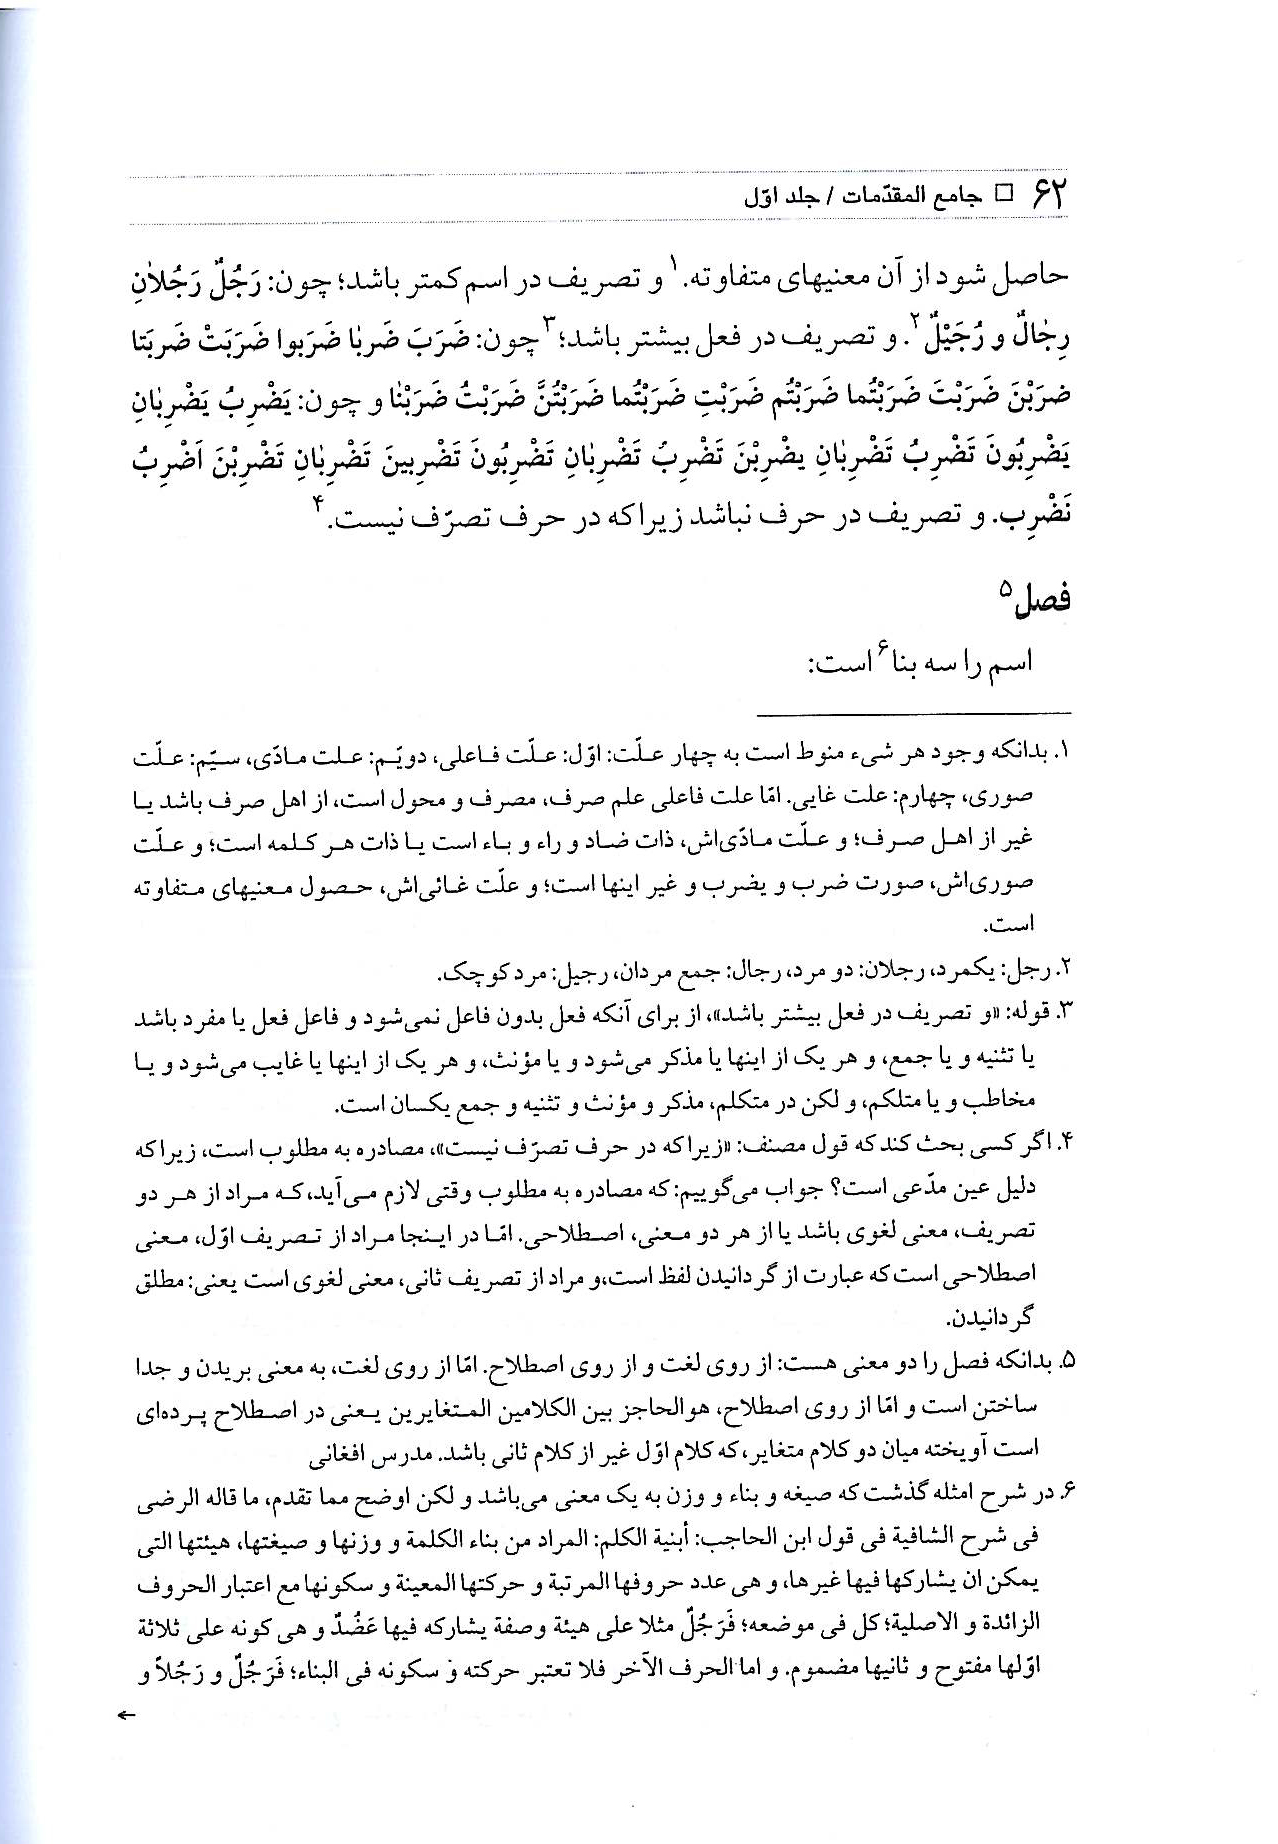 ۶۲ □ جامع المقدّمات / جلد اوّل
حاصل شود از آن معنیهای متفاوته.۱ و تصریف در اسم کمتر باشد؛ چون: رَجُلٌ رَجُلاٰنِ
رِجٰالٌ و رُجَیْلٌ۲. و تصریف در فعل بیشتر باشد؛۳ چون: ضَرَبَ ضَرَبٰا ضَرَبوا ضَرَبَتْ ضَرَبَتا
ضَرَبْنَ ضَرَبْتَ ضَرَبْتُما ضَرَبْتُم ضَرَبْتِ ضَرَبْتُما ضَرَبْتُنَّ ضَرَبْتُ ضَرَبْنٰا و چون: یَضْرِبُ یَضْرِبٰانِ
یَضْرِبُونَ تَضْرِبُ تَضْرِبٰانِ یضْرِبْنَ تَضْرِبُ تَضْرِبٰانِ تَضْرِبُونَ تَضْرِبینَ تَضْرِبٰانِ تَضْرِبْنَ اَضْرِبُ
نَضْرِب. و تصریف در حرف نباشد زیرا که در حرف تصرّف نیست.۴
فصل۵
اسم را سه بنا۶ است:
۱. بدانکه وجود هر شیء منوط است به چهار علّت: اوّل: علّت فاعلی، دویّم: علت مادّی، سیّم: علّت
صوری، چهارم: علت غایی. امّا علت فاعلی علم صرف، مصرف و محول است، از اهل صرف باشد یا
غیر از اهل صرف؛ و علّت مادّی‌اش، ذات ضاد و راء و باء است یا ذات هر کلمه است؛ و علّت
صوری‌اش، صورت ضرب و یضرب و غیر اینها است؛ و علّت غائی‌اش، حصول معنیهای متفاوته
است.
۲. رجل: یکمرد، رجلان: دو مرد، رجال: جمع مردان، رجیل: مرد کوچک.
۳. قوله: «و تصریف در فعل بیشتر باشد»، از برای آنکه فعل بدون فاعل نمی‌شود و فاعل فعل یا مفرد باشد
یا تثنیه و یا جمع، و هر یک از اینها یا مذکر می‌شود و یا مؤنث، و هر یک از اینها یا غایب می‌شود و یا
مخاطب و یا متلکم، و لکن در متکلم، مذکر و مؤنث و تثنیه و جمع یکسان است.
۴. اگر کسی بحث کند که قول مصنف: «زیرا که در حرف تصرّف نیست»، مصادره به مطلوب است، زیرا که
دلیل عین مدّعی است؟ جواب می‌گوییم: که مصادره به مطلوب وقتی لازم می‌آید، که مراد از هر دو
تصریف، معنی لغوی باشد یا از هر دو معنی، اصطلاحی. امّا در اینجا مراد از تصریف اوّل، معنی
اصطلاحی است که عبارت از گردانیدن لفظ است، و مراد از تصریف ثانی، معنی لغوی است یعنی: مطلق
گردانیدن.
۵. بدانکه فصل را دو معنی هست: از روی لغت و از روی اصطلاح. امّا از روی لغت، به معنی بریدن و جدا
ساختن است و امّا از روی اصطلاح، هوالحاجز بین الکلامین المتغایرین یعنی در اصطلاح پرده‌ای
است آویخته میان دو کلام متغایر، که کلام اوّل غیر از کلام ثانی باشد. مدرس افغانی
۶. در شرح امثله گذشت که صیغه و بناء و وزن به یک معنی می‌باشد و لکن اوضح مما تقدم، ما قاله الرضی
فی شرح الشافیة فی قول ابن الحاجب: أبنیة الکلم: المراد من بناء الکلمة و وزنها و صیغتها، هیئتها التی
یمکن ان یشارکها فیها غیرها، و هی عدد حروفها المرتبة و حرکتها المعینة و سکونها مع اعتبار الحروف
الزائدة و الاصلیة؛ کل فی موضعه؛ فَرَجُلٌ مثلا علی هیئة وصفة یشارکه فیها عَضُدٌ و هی کونه علی ثلاثة
اوّلها مفتوح و ثانیها مضموم. و اما الحرف الآخر فلا تعتبر حرکته و سکونه فی البناء؛ فَرَجُلٌ و رَجُلاً و
←